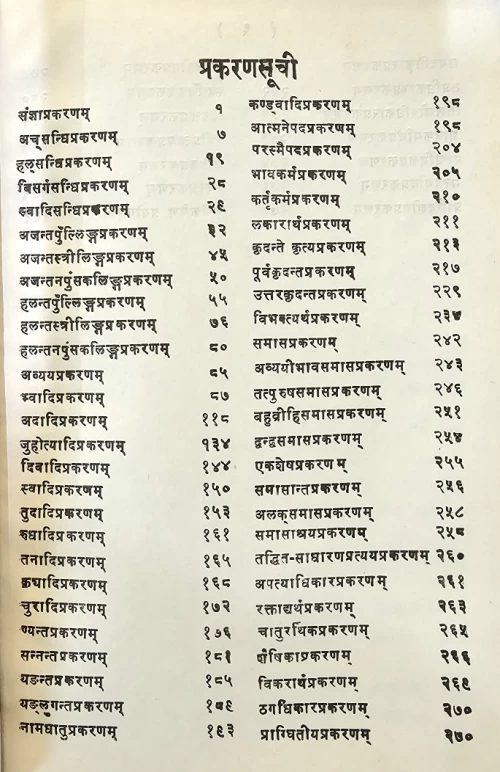 प्रकरणसूची
संज्ञाप्रकरणम् १
अच्सन्धिप्रकरणम् ७
हल्सन्धिप्रकरणम् १९
विसर्गसन्धिप्रकरणम् २८
स्वादिसन्धिप्रकरणम् २९
अजन्तपुँल्लिङ्गप्रकरणम् ३२
अजन्तस्त्रीलिङ्गप्रकरणम् ४५
अजन्तनपुंसकलिङ्गप्रकरणम् ५०
हलन्तपुँल्लिङ्गप्रकरणम् ५५
हलन्तस्त्रीलिङ्गप्रकरणम् ७६
हलन्तनपुंसकलिङ्गप्रकरणम् ८०
अव्ययप्रकरणम् ८५
भ्वादिप्रकरणम् ८७
अदादिप्रकरणम् ११८
जुहोत्यादिप्रकरणम् १३४
दिवादिप्रकरणम् १४४
स्वादिप्रकरणम् १५०
तुदादिप्रकरणम् १५३
रुधादिप्रकरणम् १६१
तनादिप्रकरणम् १६५
क्र्यादिप्रकरणम् १६८
चुरादिप्रकरणम् १७२
ण्यन्तप्रकरणम् १७६
सन्नन्तप्रकरणम् १८१
यङन्तप्रकरणम् १८५
यङ्लुगन्तप्रकरणम् १८९
नामधातुप्रकरणम् १९३
कण्ड्वादिप्रकरणम् १९८
आत्मनेपदप्रकरणम् १९८
परस्मैपदप्रकरणम् २०४
भावकर्मप्रकरणम् २०५
कर्तृकर्मप्रकरणम् २१०
लकारार्थप्रकरणम् २११
कृदन्ते कृत्यप्रकरणम् २१३
पूर्वकृदन्तप्रकरणम् २१७
उत्तरकृदन्तप्रकरणम् २२९
विभक्त्यर्थप्रकरणम् २३७
समासप्रकरणम् २४२
अव्ययीभावसमासप्रकरणम् २४३
तत्पुरुषसमासप्रकरणम् २४६
बहुव्रीहिसमासप्रकरणम् २५१
द्वन्द्वसमासप्रकरणम् २५४
एकशेषप्रकरणम् २५५
समासान्तप्रकरणम् २५६
अलक्समासप्रकरणम् २५८
समासाश्रयप्रकरणम् २५८
तद्धित-साधारणप्रत्ययप्रकरणम् २६०
अपत्याधिकारप्रकरणम् २६१
रक्ताद्यर्थप्रकरणम् २६३
चातुरर्थिकप्रकरणम् २६५
शैषिकाप्रकरणम् २६६
विकारार्थप्रकरणम् २६९
ठगधिकारप्रकरणम् २७०
प्राग्घितीयप्रकरणम् २७०